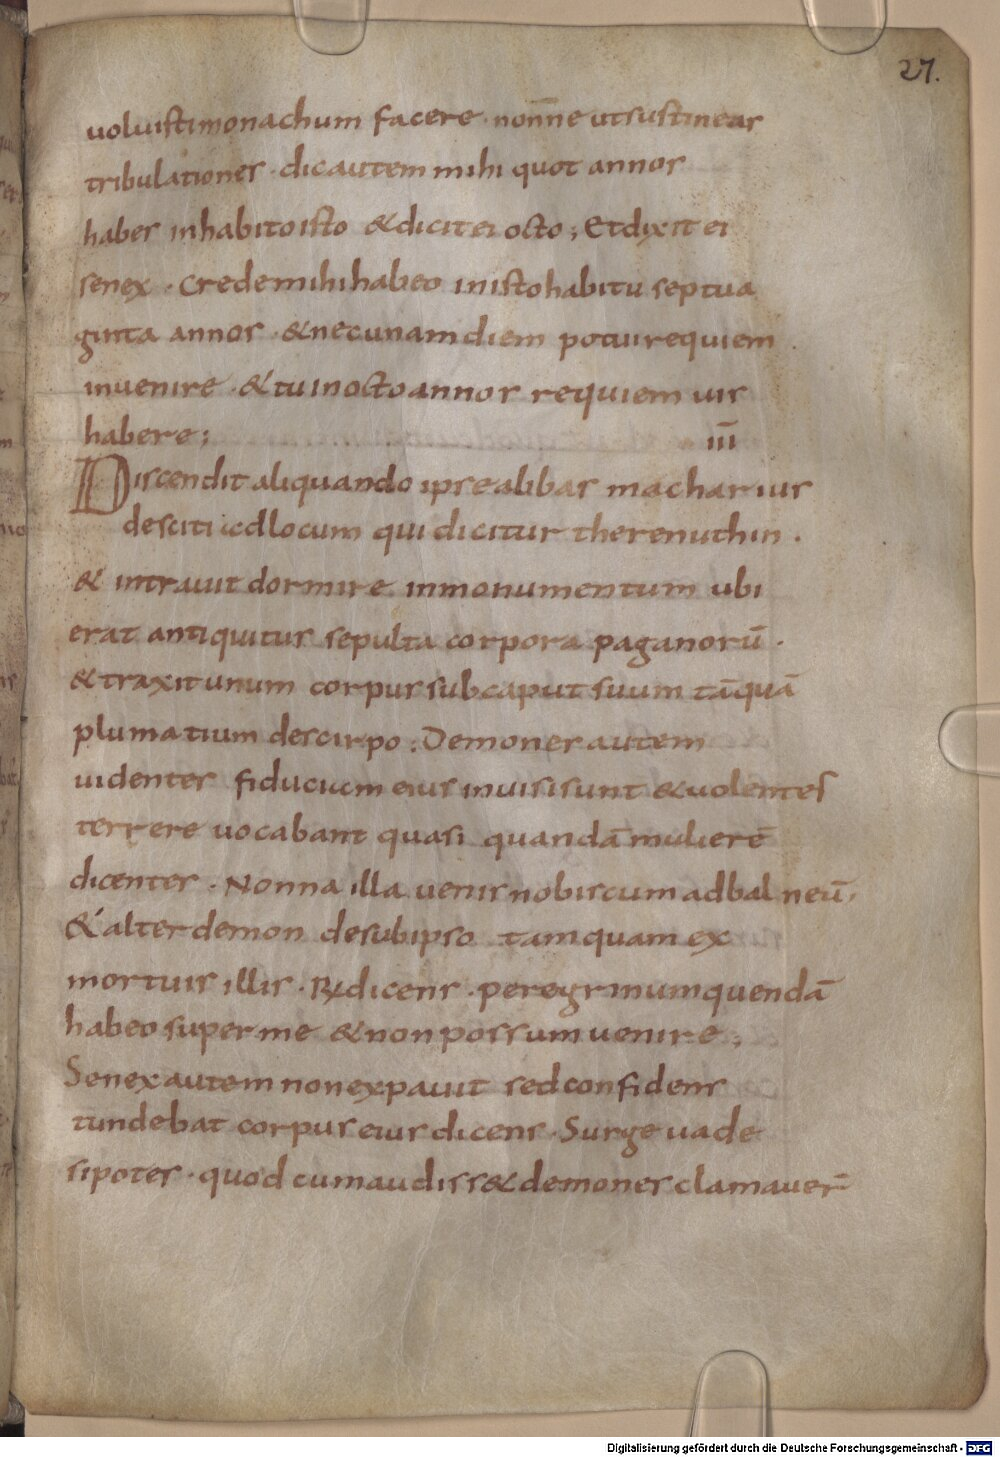 27.
uoluisti monachum facere · non̄ne ut sustineas
tribulationes · dic autem mihi quot annos
habes in habito isto & dicit ei octo ; Et dixit ei
senex · Crede mihi habeo in isto habitu septua
ginta annos · & nec unam diem potui requiem
inuenire · & tu in octo annos requiem uis
habere ; III
Discendit aliquando ipse abbas macharius
de sciti ad locum qui dicitur therenuthin ·
& intrauit dormire in monumentum ubi
erat antiquitus sepulta corpora paganorū ·
& traxit unum corpus sub caput suum tāquā
plumatium de scirpo ; Demones autem
uidentes fiduciam eius inuisi sunt & uolentes
terrere uocabant quasi quandā mulierē
dicentes · Nonna illa uenis nobiscum ad balneū ,
& alter demon de sub ipso tamquam ex
mortuis illis · R dicens · peregrinum quendā
habeo super me & non possum uenire ;
Senex autem non expauit sed confidens
tundebat corpus eius dicens · Surge uade
si potes · quod cum audiss& demones clamauer̄
Digitalisierung gefördert durch die Deutsche Forschungsgemeinschaft - DFG